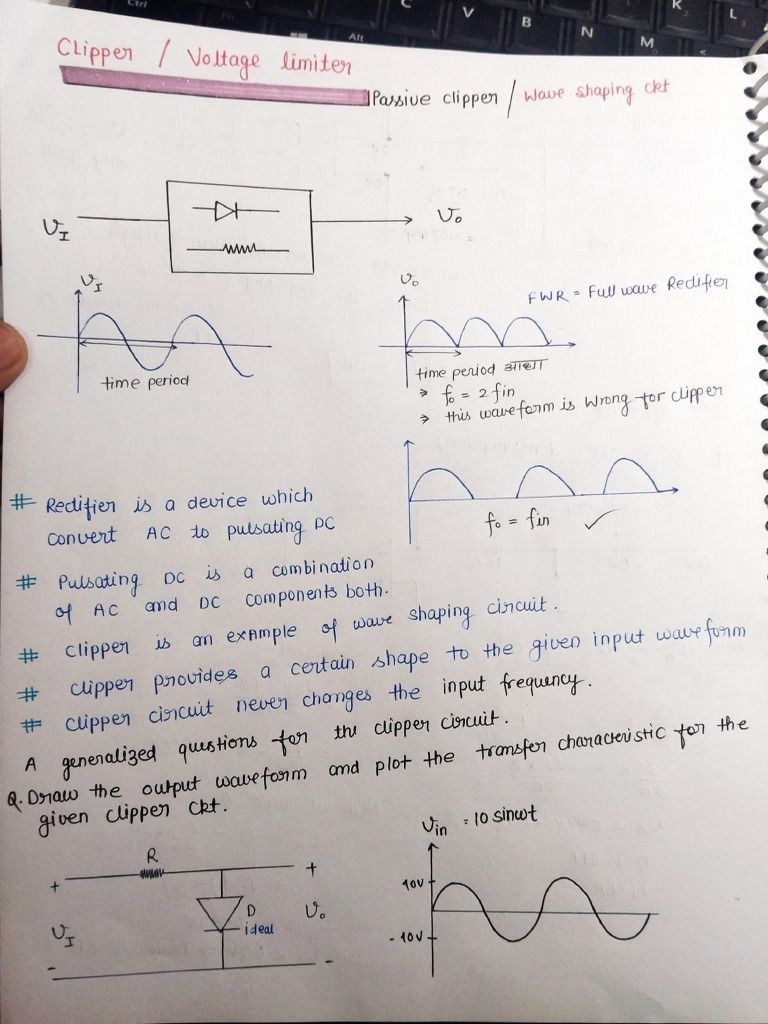 Clipper / Voltage limiter
Passive clipper / Wave shaping ckt
V_I
V_o
V_I
time period
V_o
FWR = Full wave Rectifier
time period आधा
→ f_o = 2 fin
→ this waveform is Wrong for clipper
f_o = fin ✓
# Rectifier is a device which
convert AC to pulsating DC
# Pulsating DC is a combination
of AC and DC components both.
# Clipper is an example of wave shaping circuit.
# clipper provides a certain shape to the given input waveform
# clipper circuit never changes the input frequency.
A generalized questions for the clipper circuit.
Q. Draw the output waveform and plot the transfer characteristic for the
given clipper ckt.
R
+
+
V_I
D
ideal
V_o
-
-
V_in = 10 sinωt
10V
-10V